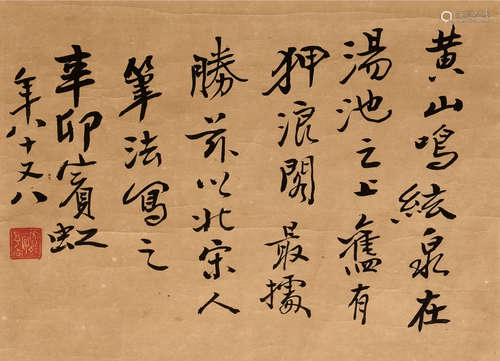 黄山鸣絃泉在
湯池之上舊有
狎浪閣最擅
勝兹以北宋人
筆法寫之
辛卯賓虹
年八十又八